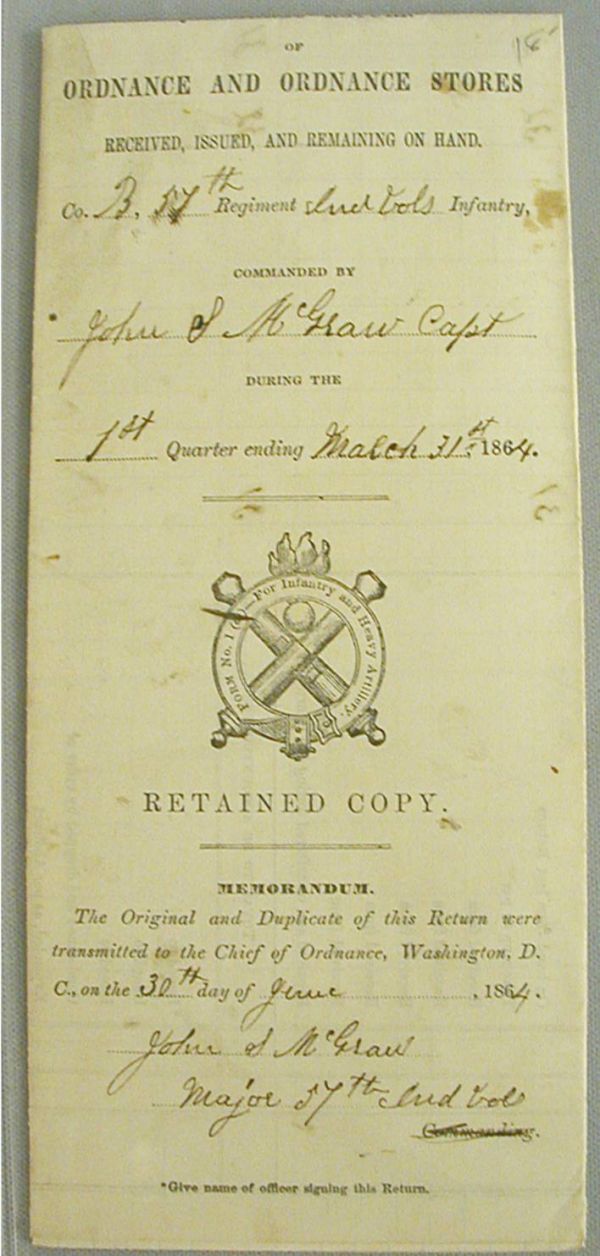 18
OF
ORDNANCE AND ORDNANCE STORES
RECEIVED, ISSUED, AND REMAINING ON HAND.
Co. B, 57th Regiment Ind Vols Infantry,
COMMANDED BY
* John S McGraw Capt
DURING THE
1st Quarter ending March 31st 1864.
FORM No. 1 —For Infantry and Heavy Artillery.
RETAINED COPY.
MEMORANDUM.
The Original and Duplicate of this Return were
transmitted to the Chief of Ordnance, Washington, D.
C., on the 30th day of June, 1864.
John S McGraw
Major 57th Ind Vol
Commanding.
*Give name of officer signing this Return.